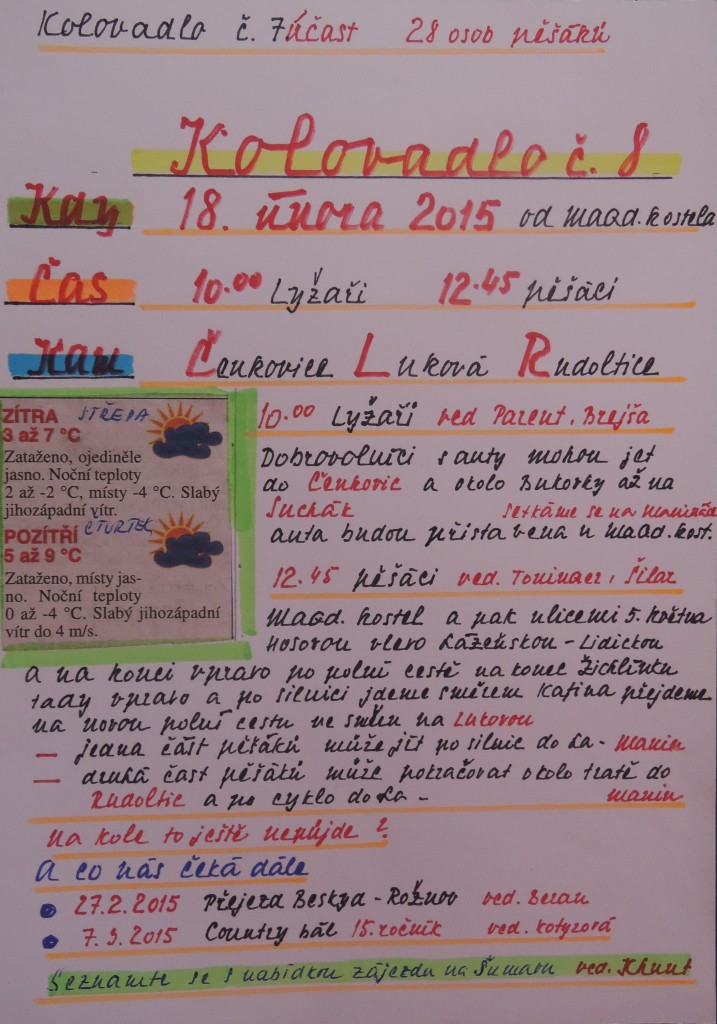 Kolovadlo č. 7 účast 28 osob pěšáků
Kolovadlo č. 8
Kdy 18. února 2015 od Magd. kostela
Čas 10.00 Lyžaři 12.45 pěšáci
Kam Čenkovice Luková Rudoltice
ZÍTRA STŘEDA
3 až 7 °C
Zataženo, ojediněle
jasno. Noční teploty
2 až -2 °C, místy -4 °C. Slabý
jihozápadní vítr.
POZÍTŘÍ ČTVRTEK
5 až 9 °C
Zataženo, místy jas-
no. Noční teploty
0 až -4 °C. Slabý jihozápadní
vítr do 4 m/s.
10.00 Lyžaři ved Parent, Brejša
Dobrovolníci s auty mohou jet
do Čenkovic a okolo Bukovky až na
Suchák Setkáme se na
auta budou přistavena u Magd. kost.
12.45 pěšáci ved. Šilar
Magd. kostel a pak ulicemi 5. května
Hosovou vlevo Lázeňskou - Lidickou
a na konci vpravo po polní cestě na konec Žichlínku
tady vpravo a po silnici jdeme směrem Katina přejdeme
na novou polní cestu ve směru na Lukovou
— jedna část pěšáků může jít po silnic do La - Manin
— druhá část pěšáků může pokračovat okolo tratě do
Rudoltic a po cyklo do La - manin
Na kole to ještě nepůjde?
A co nás čeká dále
• 27.2.2015 Přejezd Beskyd - Rožnov ved. Beran
• 7.3.2015 Country bál 15. ročník ved. Kotyzová
Seznamte se s nabídkou zájezdu na Šumavu ved. Khunt